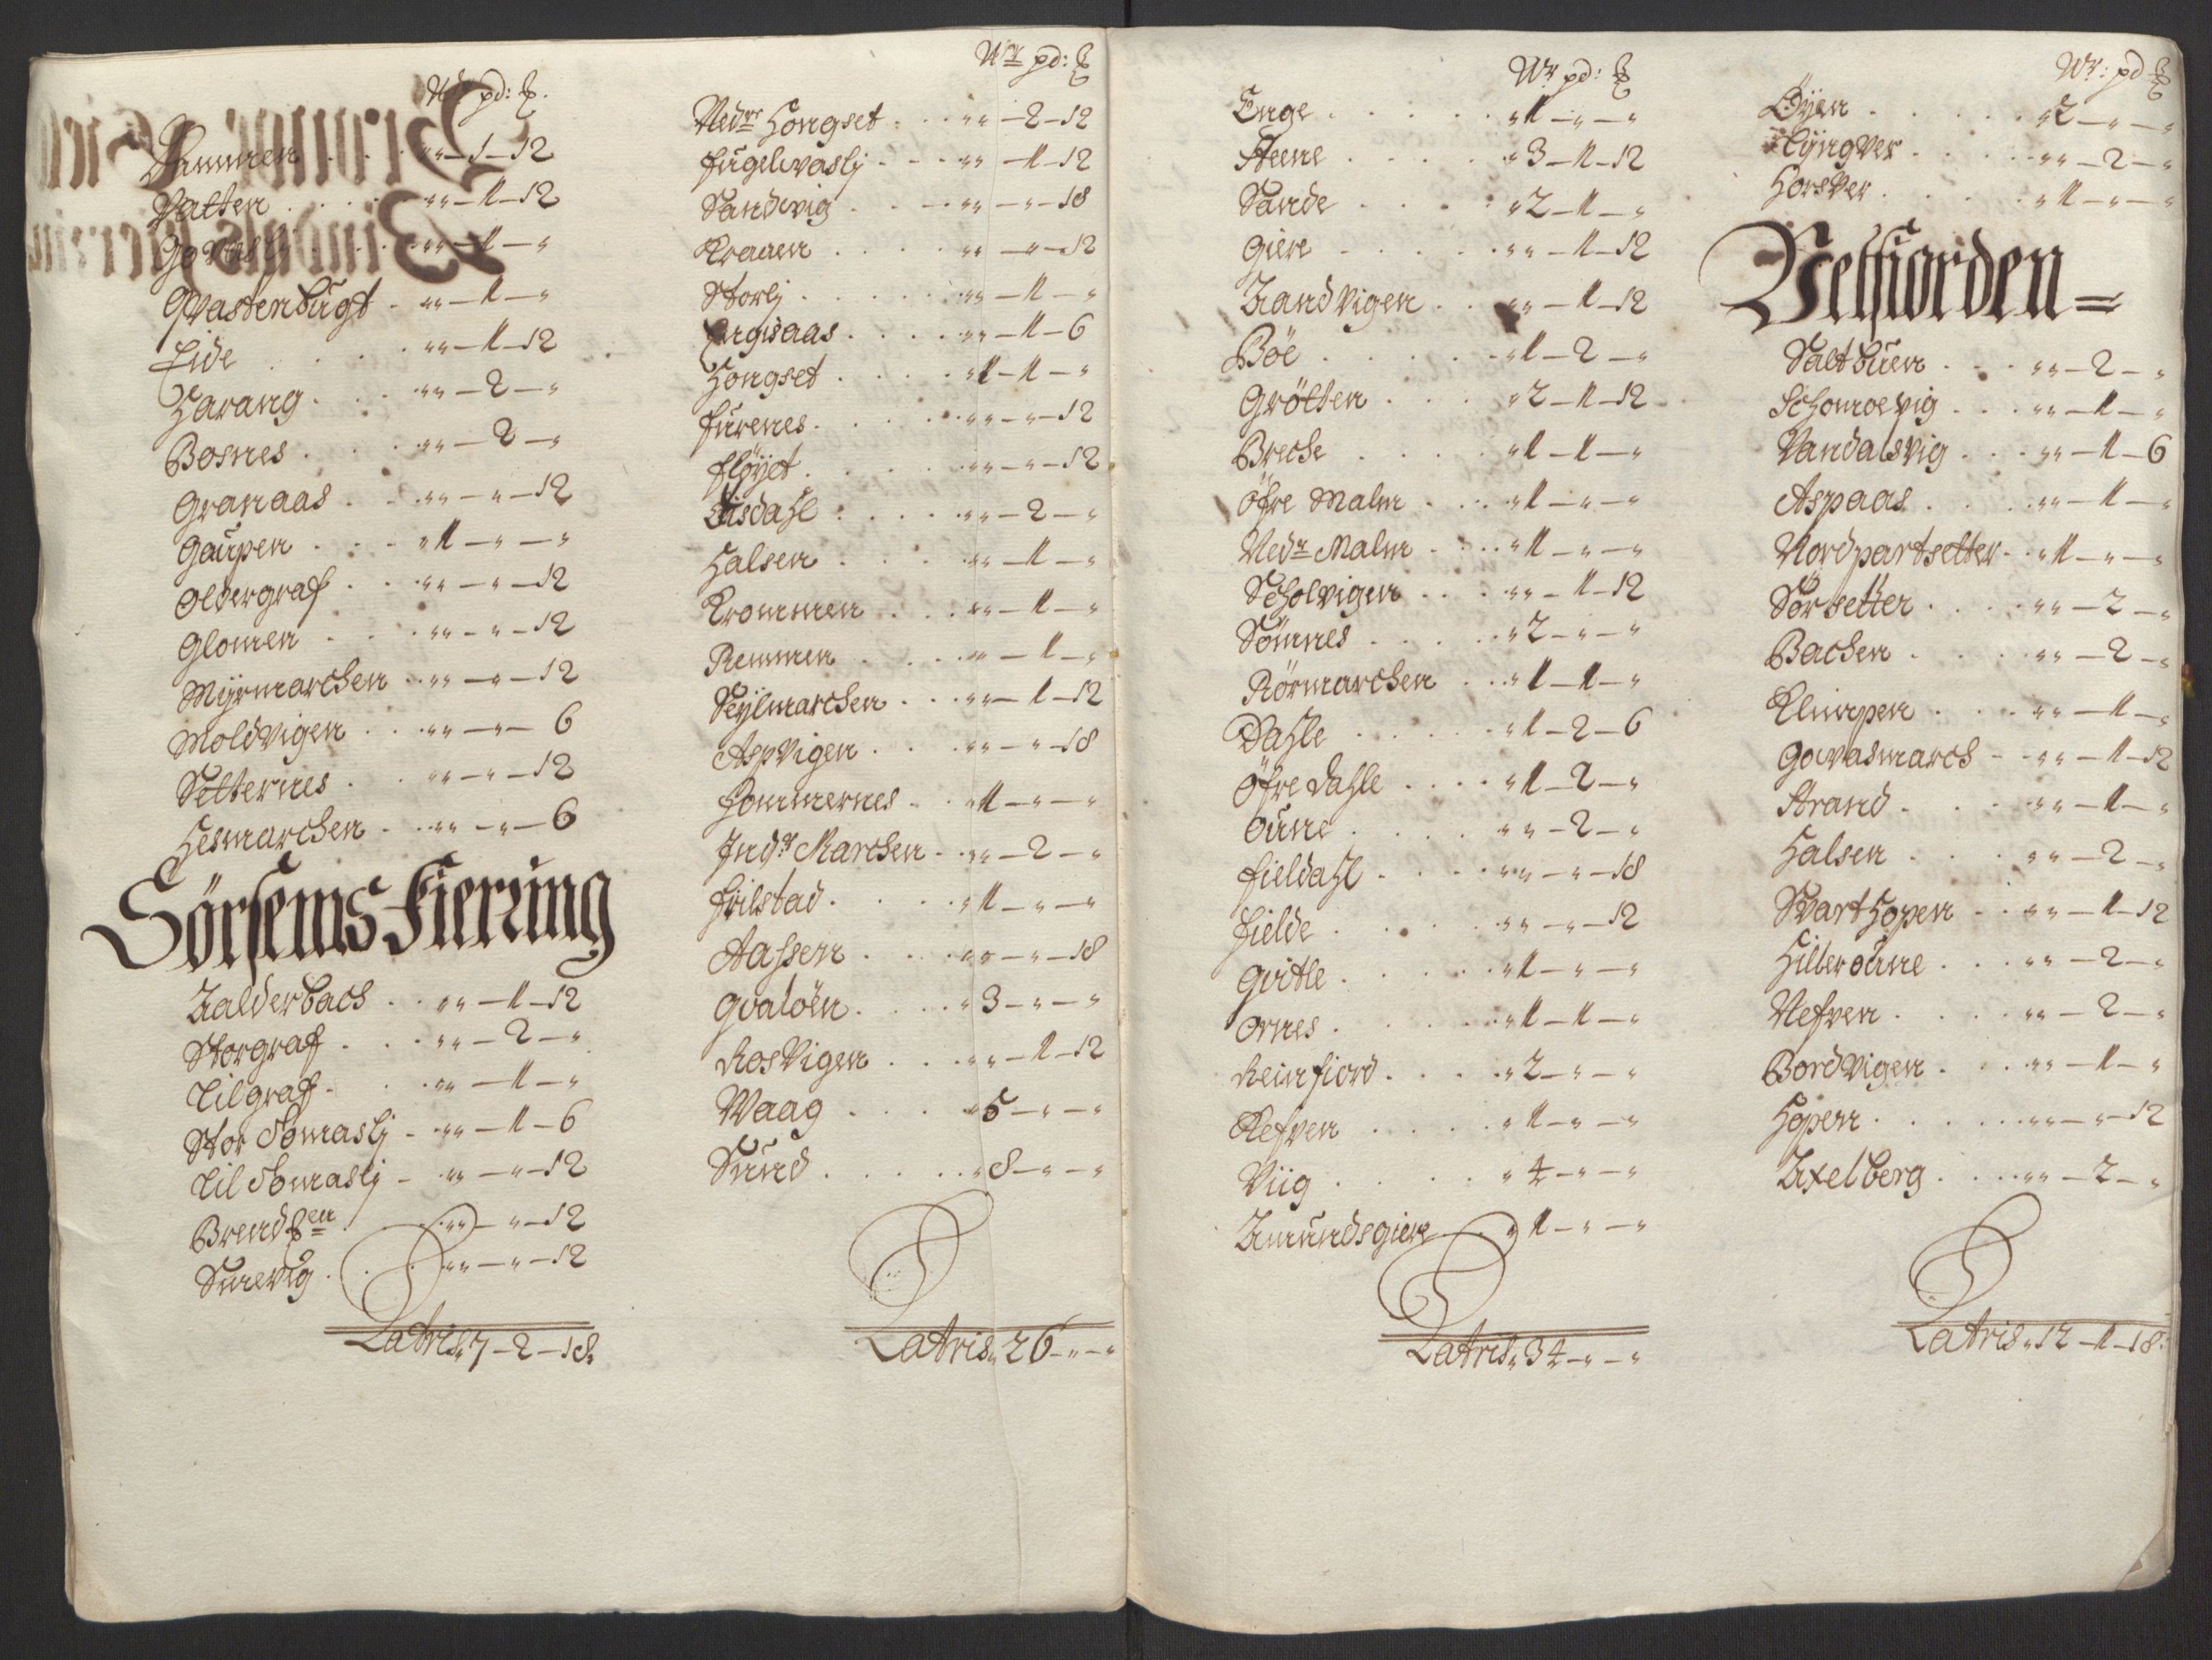 Wr pd: ℔.
Dummen . . . „„ — 1 — 12
Vatten . . . „„ — 1 — 12
Govasli . . . „„ — 1 — „
Qvastenbugt . „„ — 1 — „
Eide . . . „„ — 1 — 12
Harang . . . „„ — 2 — „
Bosnes . . . „„ — 2 — „
Granaas . . „„ — „ — 12
Gaupen . . . „ 1 — „ — „
Oldergraf . . „„ — „ — 12
Glomen . . . „„ — „ — 12
Myrmarchen . „„ — „ — 12
Moldvigen . . „„ — „ — 6
Setternes . . „„ — „ — 12
Hesmarchen . . „„ — „ — 6
Sörsems Fierring
Kalderbach . . „„ — 1 — 12
Storgraf . . . „„ — 2 — „
Lilgraf . . . „„ — 1 — „
Stor Somaslj . „„ — 1 — 6
Lil Somaslj . „„ — „ — 12
Brendßen . . „„ — „ — 12
Surevig . . . „„ — „ — 12
Latris „ 7 — 2 — 18
Wr pd: ℔
Nedre Hongset . . „„ — 2 — 12
Fugelvaslj . . . „„ — 1 — 12
Sandvig . . . „„ — „ — 18
Kraaen . . . „„ — „ — 12
Storlj . . . „„ — 1 — „
Engisaas . . . „„ — 1 — 6
Hongset . . . „ 1 — 1 — „
Furenes . . . „„ — „ — 12
Fløyet . . . „„ — „ — 12
Lisdahl . . . „„ — 2 — „
Halsen . . . „„ — 1 — „
Krommen . . . „„ — 1 — „
Remmen . . . „„ — 1 — „
Seylmarchen . . „„ — 1 — 12
Aspvigen . . . „„ — „ — 18
Hommernes . . „ 1 — „ — „
Indr Marchen . „„ — 2 — „
Fiilstad . . . „ 1 — „ — „
Aassen . . . „„ — „ — 18
Gvaløen . . . „ 3 — „ — „
Rosvigen . . . „„ — 1 — 12
Waag . . . „ 5 — „ — „
Sund . . . „ 8 — „ — „
Latris „ 26 — „ — „
Wr pd: ℔
Enge . . . „ 1 — „ — „
Steene . . . „ 3 — 1 — 12
Sande . . . „ 2 — 1 — „
Giere . . . „„ — 1 — 12
Zandvigen . . „„ — 1 — 12
Böe . . . „ 1 — 2 — „
Grötten . . . „ 2 — 1 — 12
Breche . . . „ 1 — 1 — „
Öfre Malm . . „ 1 — „ — „
Nedr Malm . . „ 1 — „ — „
Scholvigen . . „„ — 1 — 12
Sömnes . . . „ 2 — „ — „
Rörmarchen . . „ 1 — 1 — „
Dahle . . . „ 1 — 2 — 6
Öfre Dahle . . „ 1 — 2 — „
Oune . . . „„ — 2 — „
Fieldahl . . . „„ — „ — 18
Fielde . . . „„ — „ — 12
Gvitle . . . „ 1 — „ — „
Ornes . . . „ 1 — 1 — „
Reinfiord . . „ 2 — „ — „
Refven . . . „ 1 — „ — „
Viig . . . „ 4 — „ — „
Amundsgiere . „ 1 — „ — „
Latris „ 34 — „ — „
Wr: pd ℔
Øyen . . . „ 2 — „ — „
Lyngver . . . „„ — 2 — „
Horsver . . . „ 1 — „ — „
Velfiorden =
Saltbuen . . „„ — 2 — „
Schomoevig . . „„ — 1 — „
Vandalsvig . . „„ — 1 — 6
Aspaas . . . „„ — 1 — „
Nordpartsetter . „ 1 — „ — „
Sör setter . . „„ — 2 — „
Bachen . . . „„ — 2 — „
Klumpen . . . „„ — 1 — „
Govasmarch . . „„ — 1 — 12
Strand . . . „„ — 1 — „
Halsen . . . „„ — 2 — „
Svarthopen . . „„ — 1 — 12
Hilleroune . . „„ — 2 — „
Nefven . . . „„ — 2 — „
Bordvigen . . „„ — 1 — „
Hopen . . . „„ — „ — 12
Axelberg . . . „„ — 2 — „
Latris „ 12 — 1 — 18